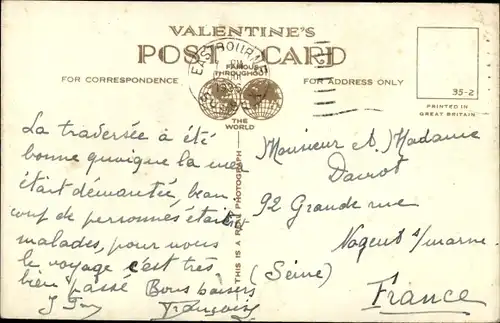 VALENTINE'S
POST CARD
FAMOUS
THROUGHOUT
THE
WORLD
EASTBOURNE
FOR CORRESPONDENCE
FOR ADDRESS ONLY
35-2
PRINTED IN
GREAT BRITAIN
THIS IS A REAL PHOTOGRAPH
La traversée a été
bonne quoique la mer
était démontée, beau
coup de personnes étaient
malades, pour nous
le voyage c'est très
bien passé Bons baisers
Françoise
Monsieur & Madame
92 Grande rue
Nogent s/marne
(Seine)
France